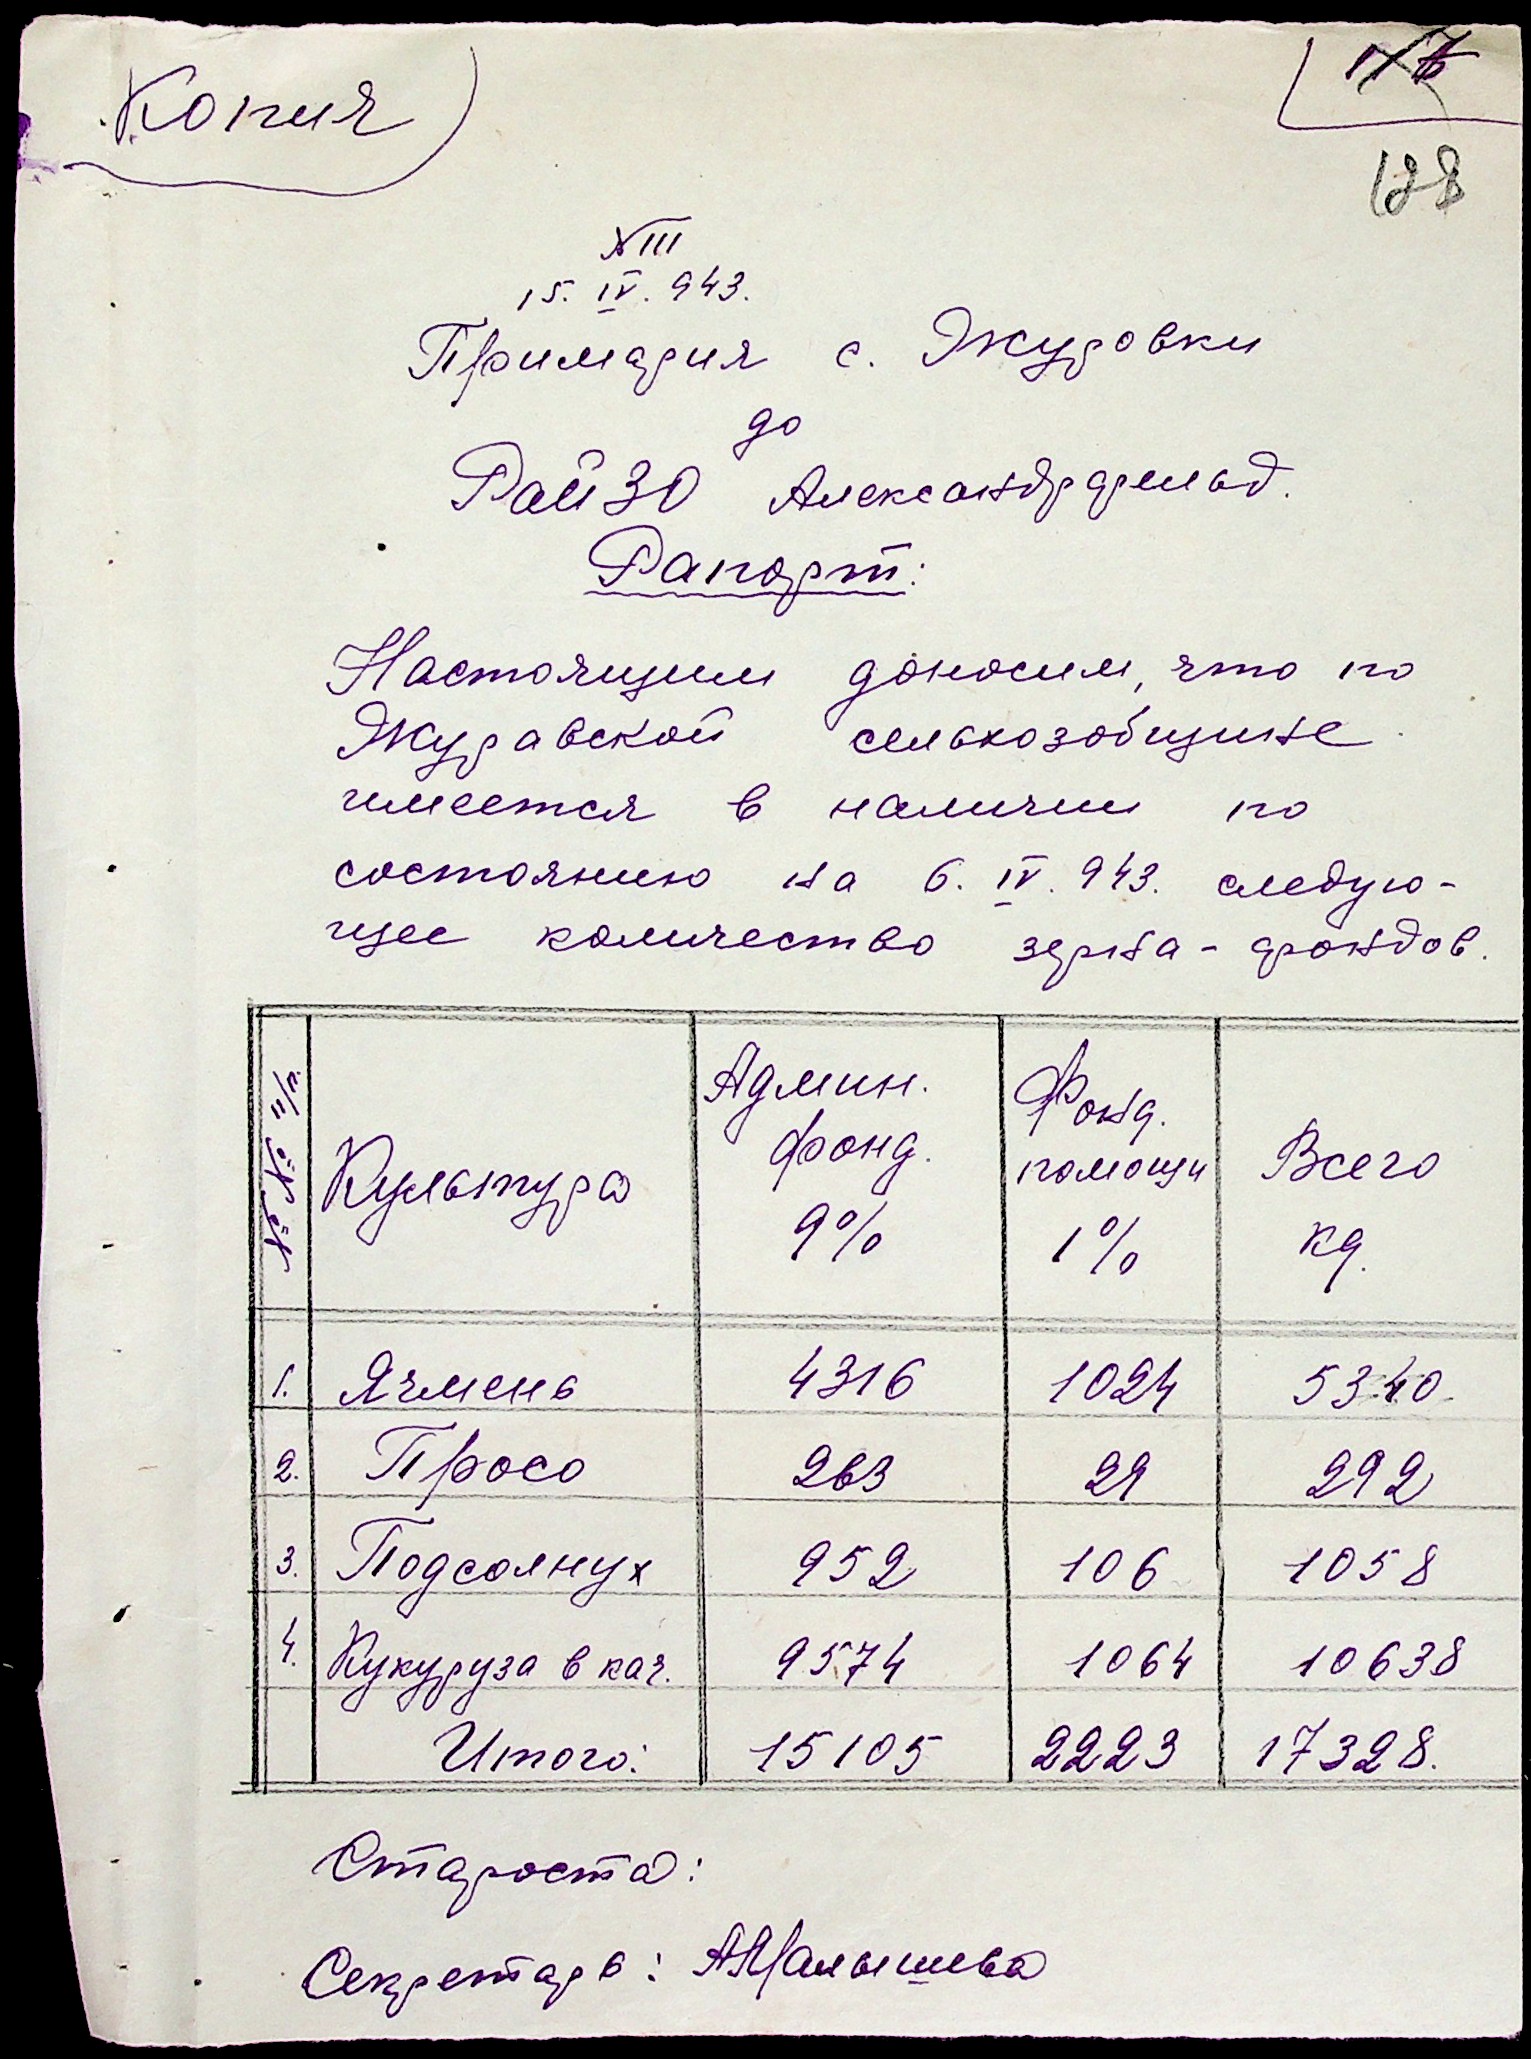 Копия
128
№ III
15. IV. 943.
Примария с. Журовки
до
РайЗО Александрфельд.
Рапорт:
Настоящим доносим, что по
Журавской сельхозобщине
имеется в наличии по
состоянию на 6. IV. 943. следую-
щее количество зерна - фондов.
№ № п/п. Культура Админ. фонд. 9% Фонд. помощи 1% Всего кг.
1. Ячмень 4316 1024 5340
2. Просо 263 29 292
3. Подсолнух 952 106 1058
4. Кукуруза в кач. 9574 1064 10638
Итого: 15105 2223 17328.
Староста:
Секретарь: АМалышева